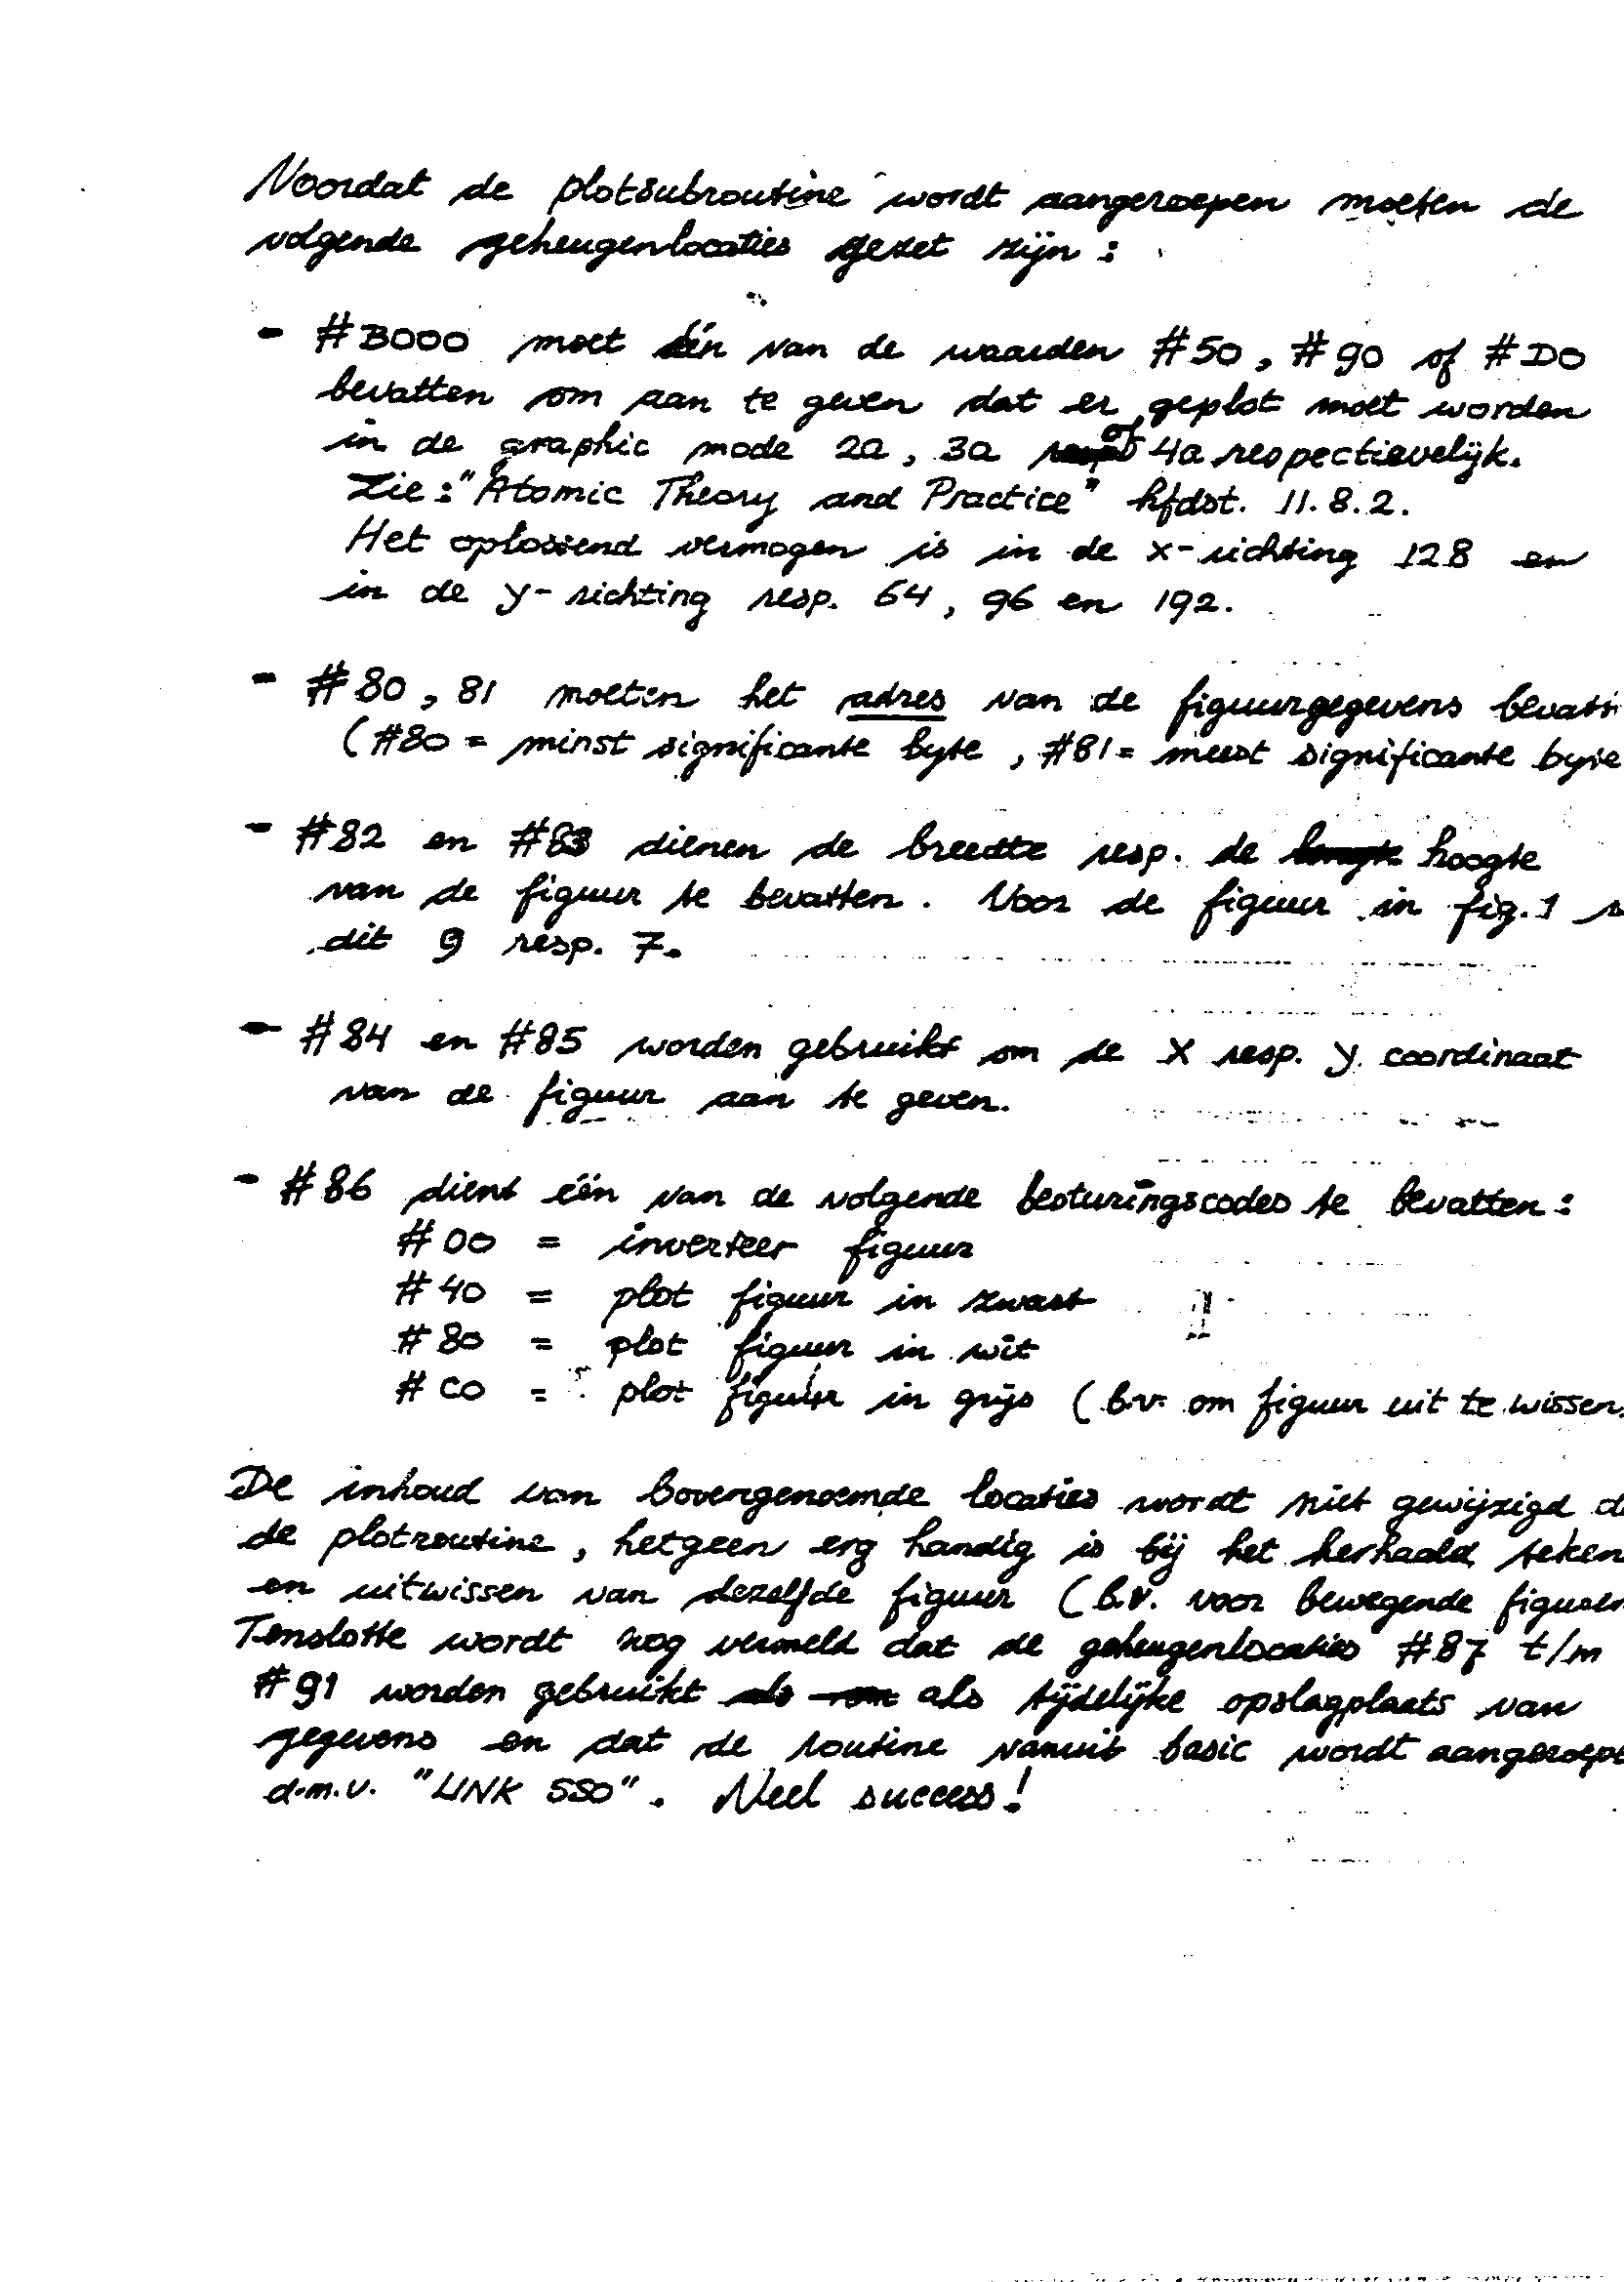 Voordat de plotsubroutine wordt aangeroepen moeten de
volgende geheugenlocaties gezet zijn :
- #B000 moet één van de waarden #50, #90 of #D0
bevatten om aan te geven dat er geplot moet worden
in de graphic mode 2a, 3a of 4a respectievelijk.
Zie: "Atomic Theory and Practice" hfdst. 11.8.2.
Het oplossend vermogen is in de x-richting 128 en
in de y-richting resp. 64, 96 en 192.
- #80, 81 moeten het adres van de figuurgegevens bevatt
(#80 = minst significante byte, #81 = meest significante byte
- #82 en #83 dienen de breedte resp. de hoogte
van de figuur te bevatten. Voor de figuur in fig. 1
dit 9 resp. 7.
- #84 en #85 worden gebruikt om de X resp. Y coordinaat
van de figuur aan te geven.
- #86 dient één van de volgende besturingscodes te bevatten :
#00 = inverteer figuur
#40 = plot figuur in zwart
#80 = plot figuur in wit
#C0 = plot figuur in grijs (b.v. om figuur uit te wissen
De inhoud van bovengenoemde locaties wordt niet gewijzigd d
de plotroutine, hetgeen erg handig is bij het herhaald teken
en uitwissen van dezelfde figuur (b.v. voor bewegende figuren
Tenslotte wordt nog vermeld dat de geheugenlocaties #87 t/m
#91 worden gebruikt als tijdelijke opslagplaats van
gegevens en dat de routine vanuit basic wordt aangeroepe
d.m.v. "LINK SS0". Veel success!